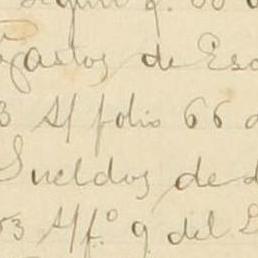 Gastos de Esc
3 S/ folio 66 d
Sueldos de
03 S/f.º 9 del